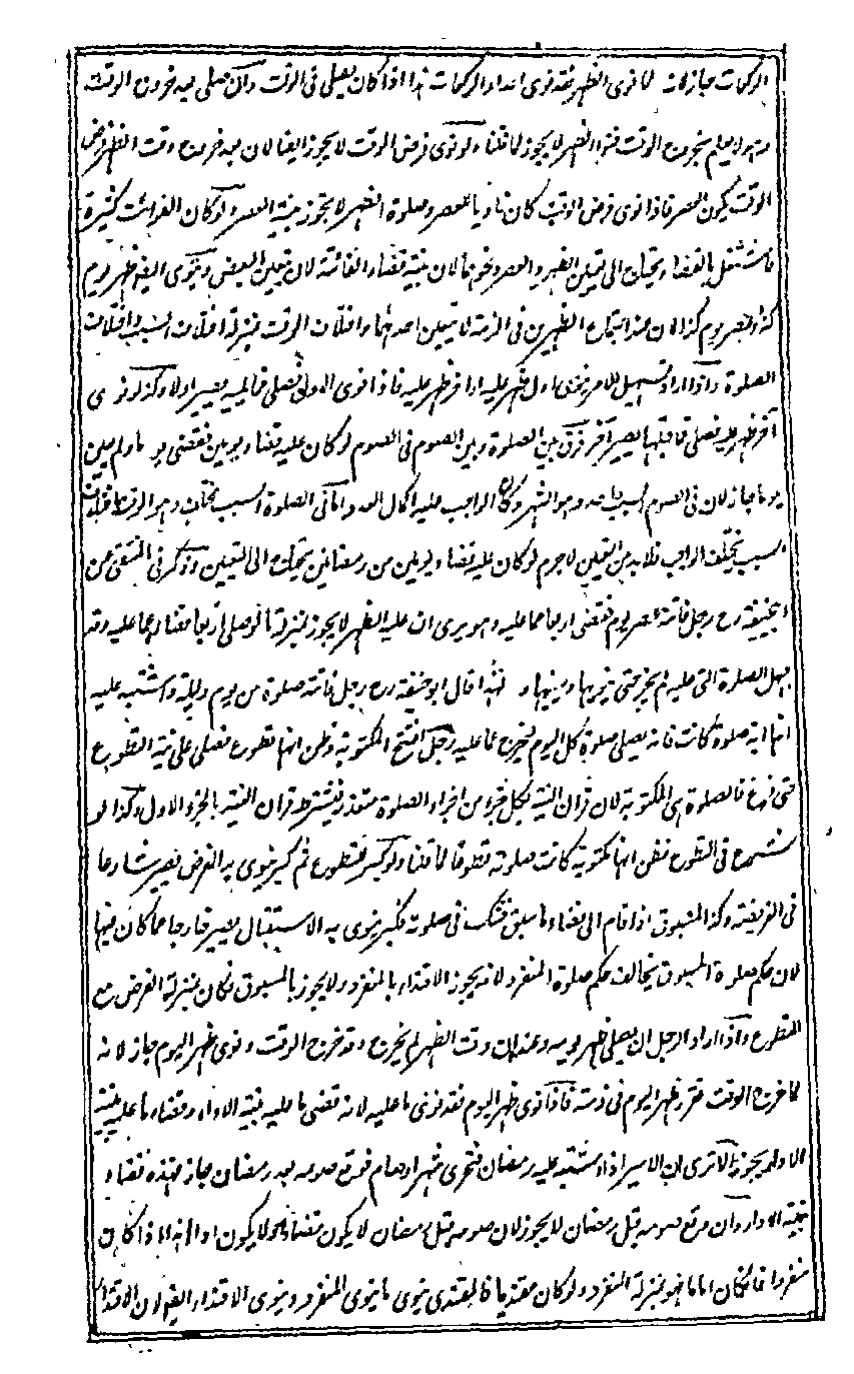 الركعات جاز لانه لما نوى الظهر فقد نوى اعداد الركعات هذا اذا كان يصلى فى الوقت وان صلى بعد خروج الوقت
وهو لا يعلم بخروج الوقت فنوى الظهر لا يجوز لما قلنا ولو نوى فرض الوقت لا يجوز ايضا لان بعد خروج وقت الظهر فرض
الوقت يكون العصر فاذا نوى فرض الوقت كان ناويا للعصر وصلوة الظهر لا تجوز بنية العصر ولو كان الفوائت كثيرة
فاشتغل بالقضاء يحتاج الى تعيين الظهر والعصر ونحوهما لان بنية قضاء الفائتة لان تعيين البعض وينوى ايضا ظهر يوم
كذا وعصر يوم كذا لان عند اجتماع الظهرين فى الذمة لا يتعين احدهما واختلاف الوقت بمنزلة اختلاف السبب واختلاف
الصلوة واذا اراد تسهيل الامر ينوى اول ظهر عليه او اخر ظهر عليه فاذا نوى الاول فصلى فما يليه يصير اولا وكذا لو نوى
آخر ظهر عليه فصلى فما قبلها يصير آخر فرق بين الصلوة وبين الصوم فى الصوم لو كان عليه قضاء يومين فقضى يوما ولم يعين
يوما جاز لان فى الصوم السبب واحد وهو الشهر وكان الواجب عليه اكمال العدد اما فى الصلوة السبب مختلف وهو الوقت وباختلاف
السبب يختلف الواجب فلا بد من التعيين لا جرم لو كان عليه قضاء يومين من رمضانين يحتاج الى التعيين وذكر فى المنتقى عن
ابى حنيفة رح رجل فاتته عصر يوم فقضى اربعا عما عليه وهو يرى ان عليه الظهر لا يجوز بمنزلة ما لو صلى اربعا قضاء عما عليه وقد
جهل الصلوة التى عليه لم يجز حتى ينويها بعينها ولهذا قال ابو حنيفة رح رجل فاتته صلوة من يوم وليلة واشتبه عليه
انها اية صلوة كانت فانه يصلى صلوة كل اليوم ليخرج عما عليه رجل افتتح المكتوبة وظن انها تطوع فصلى على نية التطوع
حتى فرغ فالصلوة هى المكتوبة لان قران النية بكل جزء من اجزاء الصلوة متعذر فيشترط قران النية بالجزء الاول وكذا لو
شرع فى التطوع فظن انها مكتوبة كانت صلوته تطوعا لما قلنا ولو كبر للتطوع ثم كبر ينوى به الفرض يصير شارعا
فى الفريضة وكذا المسبوق اذا قام الى قضاء ما سبق فشك فى صلوته فكبر ينوى به الاستقبال يصير خارجا عما كان فيها
لان حكم صلوة المسبوق يخالف حكم صلوة المنفرد لانه يجوز الاقتداء بالمنفرد ولا يجوز بالمسبوق فكان بمنزلة الفرض مع
التطوع واذا اراد الرجل ان يصلى ظهر يومه وعنده ان وقت الظهر لم يخرج وقد خرج الوقت ونوى ظهر اليوم جاز لانه
لما خرج الوقت تقرر ظهر اليوم فى ذمته فاذا نوى ظهر اليوم فقد نوى ما عليه لانه قضى ما عليه بنية الاداء وقضاء ما عليه بنية
الاداء يجوز الا ترى ان الاسير اذا اشتبه عليه رمضان فتحرى شهرا وصام فوقع صومه بعد رمضان جاز وهذه قضاء
بنية الاداء وان وقع صومه قبل رمضان لا يجوز لان صومه قبل رمضان لا يكون قضاء ولا يكون اداء هذا اذا كان
منفردا فان كان اماما فهو بمنزلة المنفرد ولو كان مقتديا فالمقتدى ينوى ما ينوى المنفرد وينوى الاقتداء ايضا لان الاقتداء